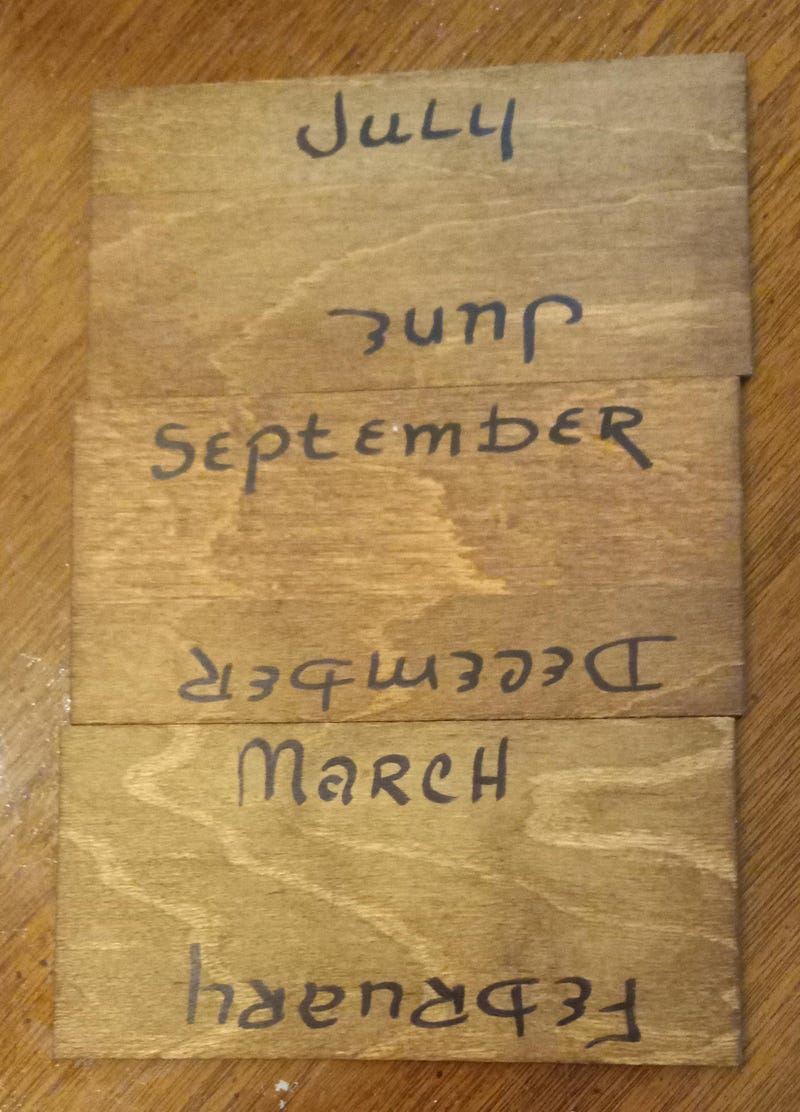 July
June
September
December
March
February